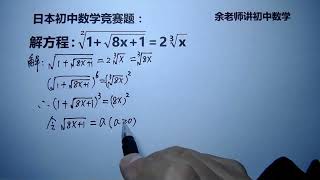 日本初中数学竞赛题：
余老师讲初中数学
解方程：²√(1+√(8x+1)) = 2 ³√x
解：√(1+√(8x+1)) = 2 ³√x = ³√(8x)
(√(1+√(8x+1)))⁶ = (³√(8x))⁶
∴ (1+√(8x+1))³ = (8x)²
令 √(8x+1) = a (a≥0)